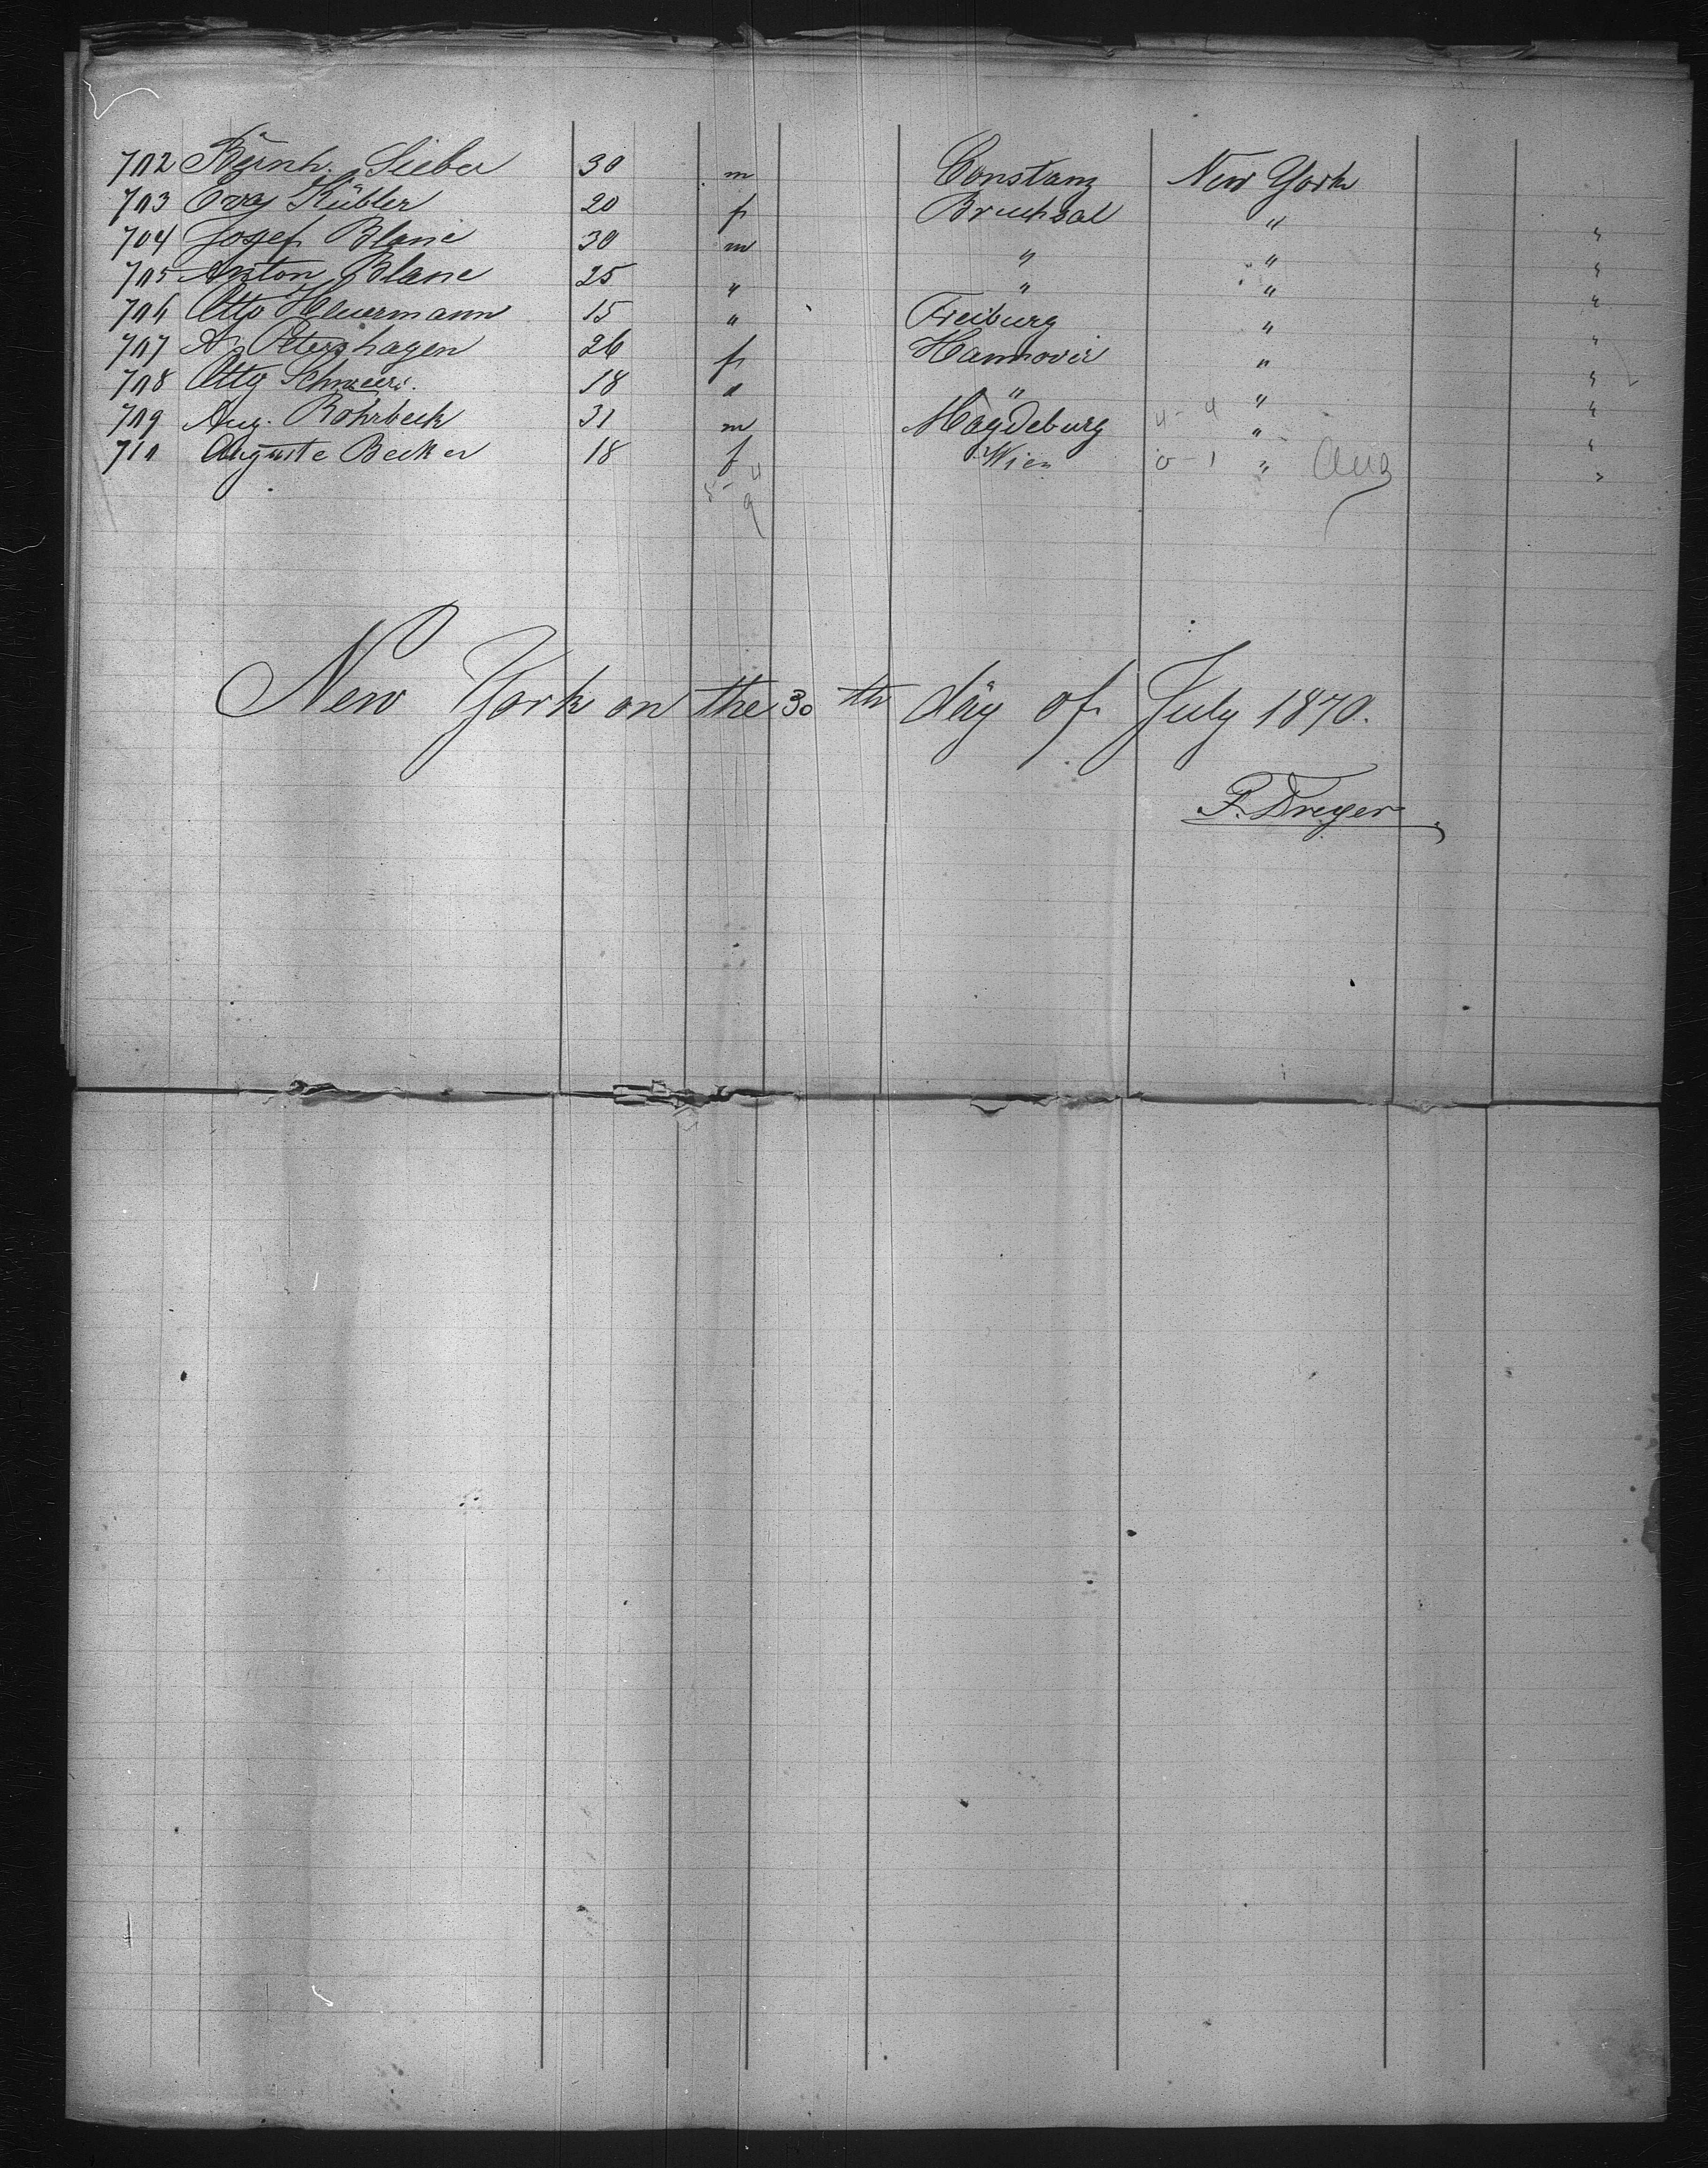 702 Bernh. Sieber 30 m Constanz New York
703 Eva Kübler 20 f Bruchsal "
704 Josef Blanc 30 m " " "
705 Anton Blanc 25 " " " "
706 Otto Heuermann 15 " Freiburg " "
707 A. Petershagen 26 f Hannover " "
708 Otto 18 " " " "
709 Aug. Rohrbeck 31 m Magdeburg 4-4 " "
710 Auguste Becker 18 f Wien 0-1 " Aug "
5-4
9
New York on the 30th day of July 1870.
F. Dreyer